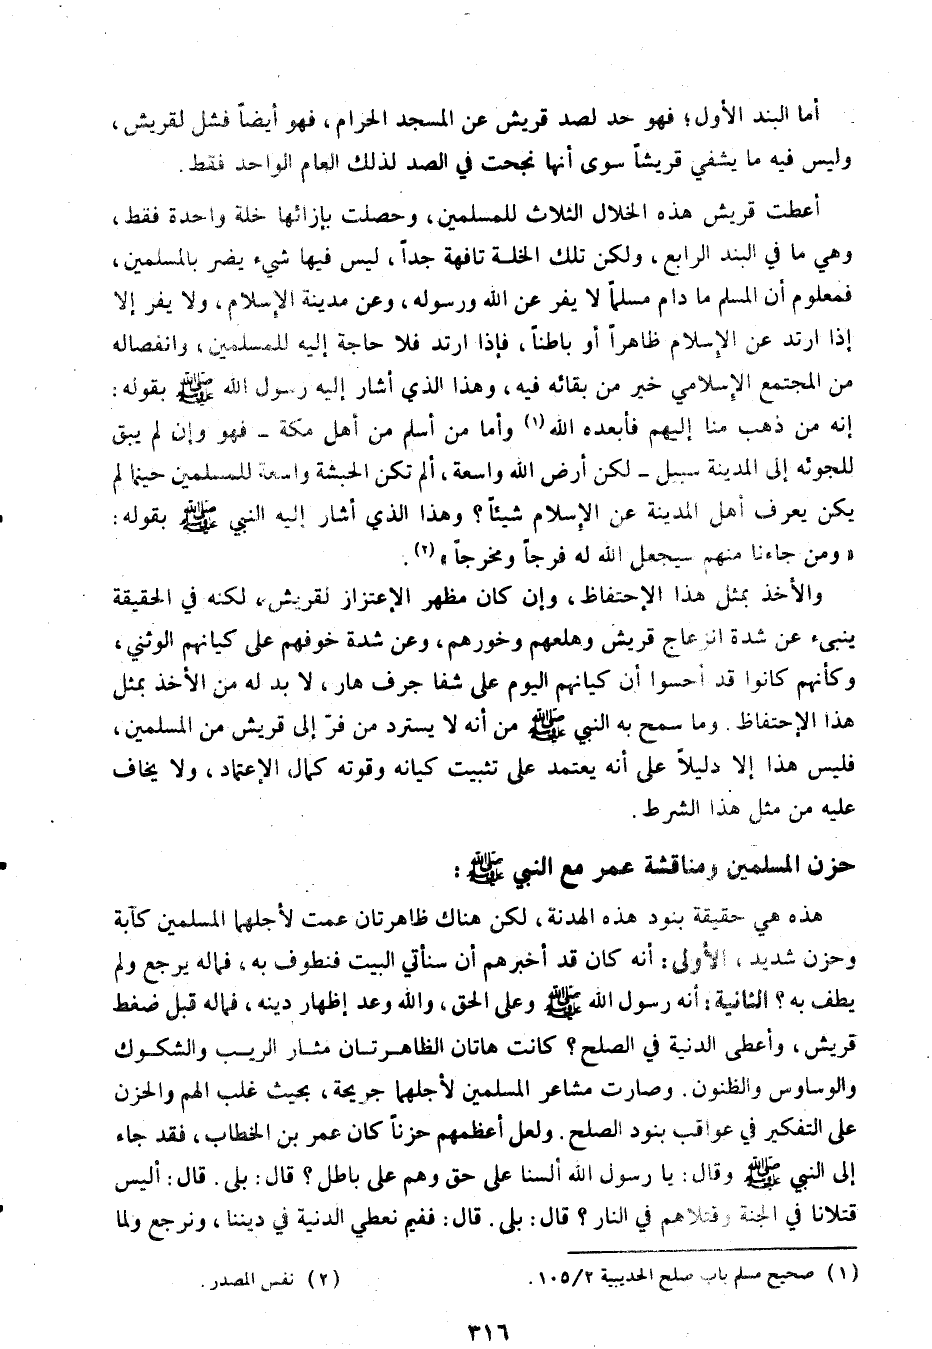 أما البند الأول؛ فهو حد لصد قريش عن المسجد الحرام، فهو أيضاً فشل لقريش،
وليس فيه ما يشفي قريشاً سوى أنها نجحت في الصد لذلك العام الواحد فقط.
أعطت قريش هذه الخلال الثلاث للمسلمين، وحصلت بإزائها خلة واحدة فقط،
وهي ما في البند الرابع، ولكن تلك الخلة تافهة جداً، ليس فيها شيء يضر بالمسلمين،
فمعلوم أن المسلم ما دام مسلماً لا يفر عن الله ورسوله، وعن مدينة الإسلام، ولا يفر إلا
إذا ارتد عن الإسلام ظاهراً أو باطناً، فإذا ارتد فلا حاجة إليه للمسلمين، وانفصاله
من المجتمع الإسلامي خير من بقائه فيه، وهذا الذي أشار إليه رسول الله ﷺ بقوله:
إنه من ذهب منا إليهم فأبعده الله (١) وأما من أسلم من أهل مكة ـ فهو وإن لم يبق
للجوئه إلى المدينة سبيل ـ لكن أرض الله واسعة، ألم تكن الحبشة واسعة للمسلمين حينما لم
يكن يعرف أهل المدينة عن الإسلام شيئاً؟ وهذا الذي أشار إليه النبي ﷺ بقوله:
«ومن جاءنا منهم سيجعل الله له فرجاً ومخرجاً» (٢).
والأخذ بمثل هذا الإحتفاظ، وإن كان مظهر الإعتزاز لقريش، لكنه في الحقيقة
ينبىء عن شدة انزعاج قريش وهلعهم وخورهم، وعن شدة خوفهم على كيانهم الوثني،
وكأنهم كانوا قد أحسوا أن كيانهم اليوم على شفا جرف هار، لا بد له من الأخذ بمثل
هذا الإحتفاظ. وما سمح به النبي ﷺ من أنه لا يسترد من فرّ إلى قريش من المسلمين،
فليس هذا إلا دليلاً على أنه يعتمد على تثبيت كيانه وقوته كمال الإعتماد، ولا يخاف
عليه من مثل هذا الشرط.
حزن المسلمين ومناقشة عمر مع النبي ﷺ:
هذه هي حقيقة بنود هذه الهدنة، لكن هناك ظاهرتان عمت لأجلهما المسلمين كآبة
وحزن شديد، الأولى: أنه كان قد أخبرهم أن سنأتي البيت فنطوف به، فماله يرجع ولم
يطف به؟ الثانية: أنه رسول الله ﷺ وعلى الحق، والله وعد إظهار دينه، فماله قبل ضغط
قريش، وأعطى الدنية في الصلح؟ كانت هاتان الظاهرتان مثار الريب والشكوك
والوساوس والظنون. وصارت مشاعر المسلمين لأجلهما جريحة، بحيث غلب الهم والحزن
على التفكير في عواقب بنود الصلح. ولعل أعظمهم حزناً كان عمر بن الخطاب، فقد جاء
إلى النبي ﷺ وقال: يا رسول الله ألسنا على حق وهم على باطل؟ قال: بلى. قال: أليس
قتلانا في الجنة وقتلاهم في النار؟ قال: بلى. قال: ففيم نعطي الدنية في ديننا، ونرجع ولما
(١) صحيح مسلم باب صلح الحديبية ١٠٥/٢. (٢) نفس المصدر.
٣١٦